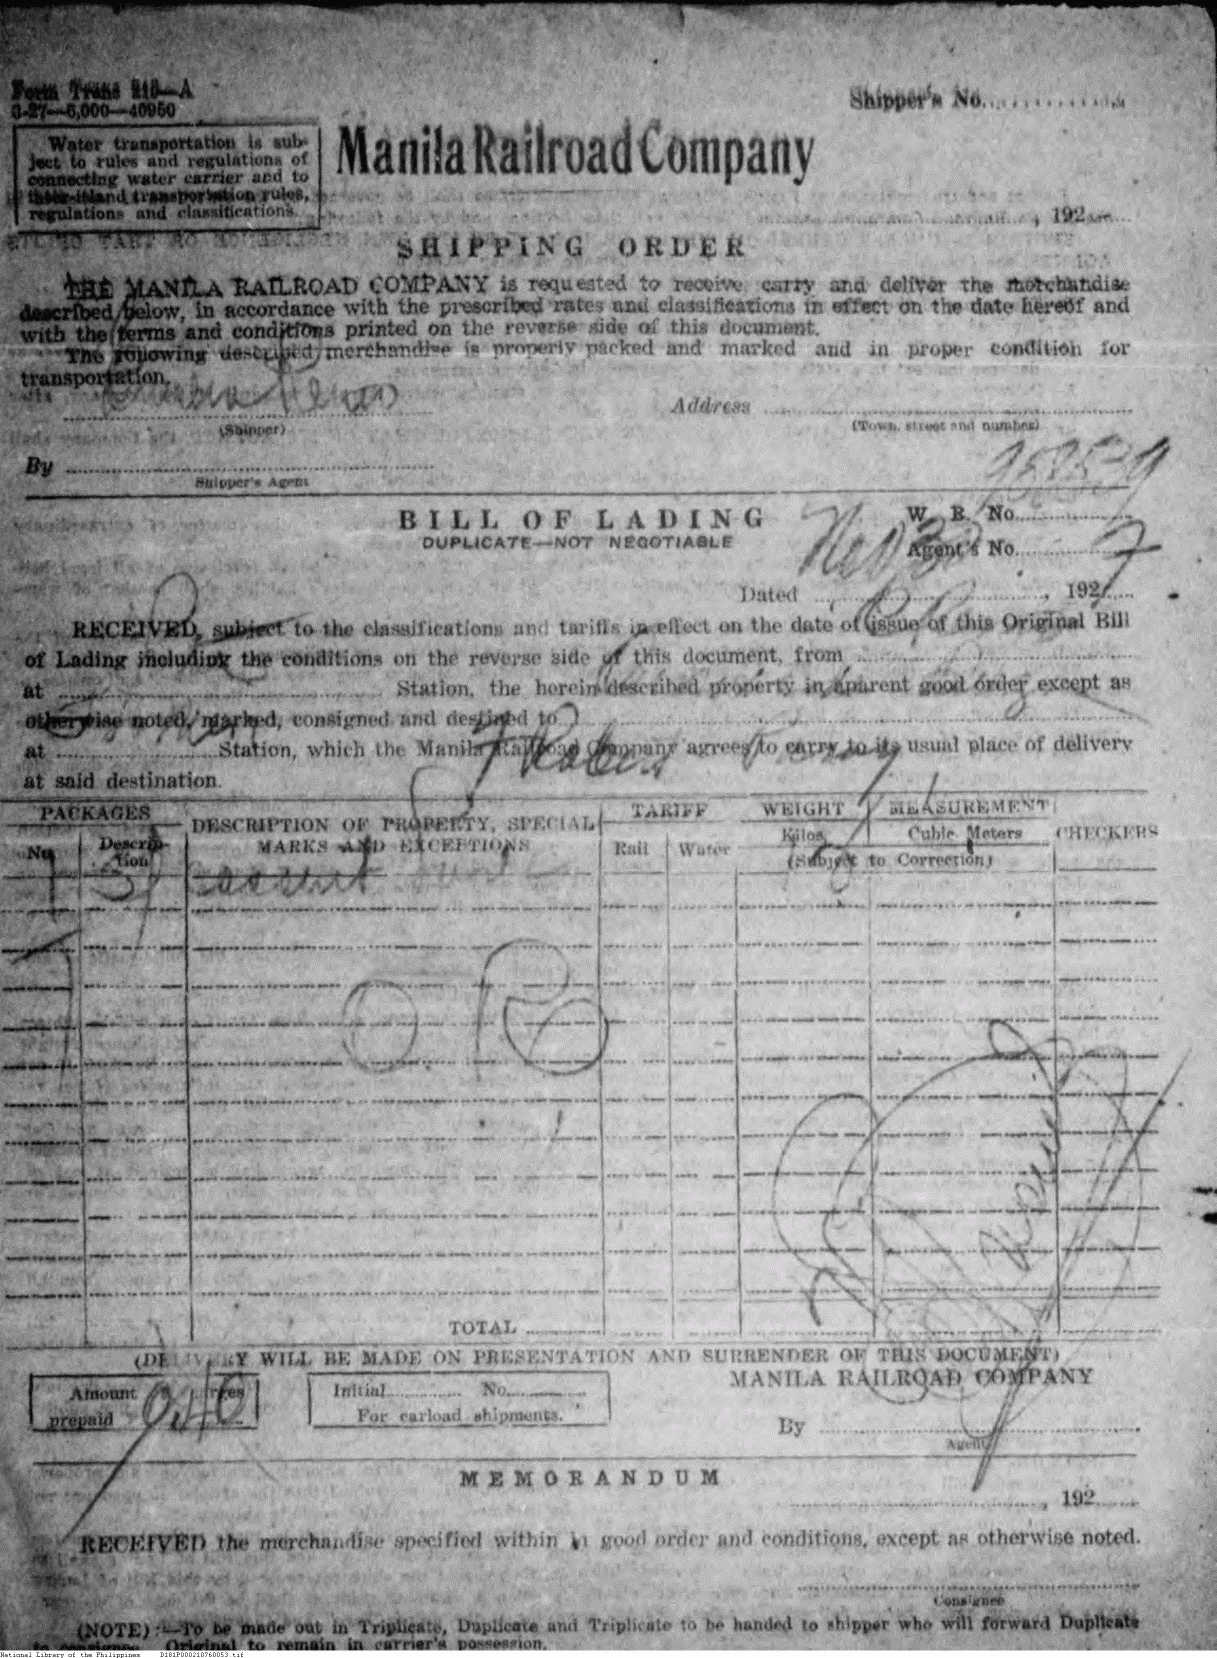 Form Trans 218—A
3-27—5,000—40950
Shipper's No.
Water transportation is sub-
ject to rules and regulations of
connecting water carrier and to
inter-island transportation rules,
regulations and classifications.
Manila Railroad Company
, 192
SHIPPING ORDER
THE MANILA RAILROAD COMPANY is requested to receive, carry and deliver the merchandise
described below, in accordance with the prescribed rates and classifications in effect on the date hereof and
with the terms and conditions printed on the reverse side of this document.
The following described merchandise is properly packed and marked and in proper condition for
transportation.
Address
(Shipper)
(Town, street and number)
By
Shipper's Agent
BILL OF LADING
DUPLICATE—NOT NEGOTIABLE
W. B. No.
Agent's No.
Dated , 1927
RECEIVED, subject to the classifications and tariffs in effect on the date of issue of this Original Bill
of Lading including the conditions on the reverse side of this document, from
at Station, the herein described property in aparent good order except as
otherwise noted, marked, consigned and destined to
at Station, which the Manila Railroad Company agrees to carry to its usual place of delivery
at said destination.
PACKAGES
No.
Descrip-
tion
DESCRIPTION OF PROPERTY, SPECIAL
MARKS AND EXCEPTIONS
TARIFF
Rail
Water
WEIGHT
Kilos
MEASUREMENT
Cubic Meters
(Subject to Correction)
CHECKERS
TOTAL
(DELIVERY WILL BE MADE ON PRESENTATION AND SURRENDER OF THIS DOCUMENT)
Amount
prepaid
Initial No.
For carload shipments.
MANILA RAILROAD COMPANY
By
Agent
MEMORANDUM
, 192
RECEIVED the merchandise specified within in good order and conditions, except as otherwise noted.
Consignee
(NOTE):—To be made out in Triplicate, Duplicate and Triplicate to be handed to shipper who will forward Duplicate
to consignee. Original to remain in carrier's possession.
National Library of the Philippines D181P000210760053.tif